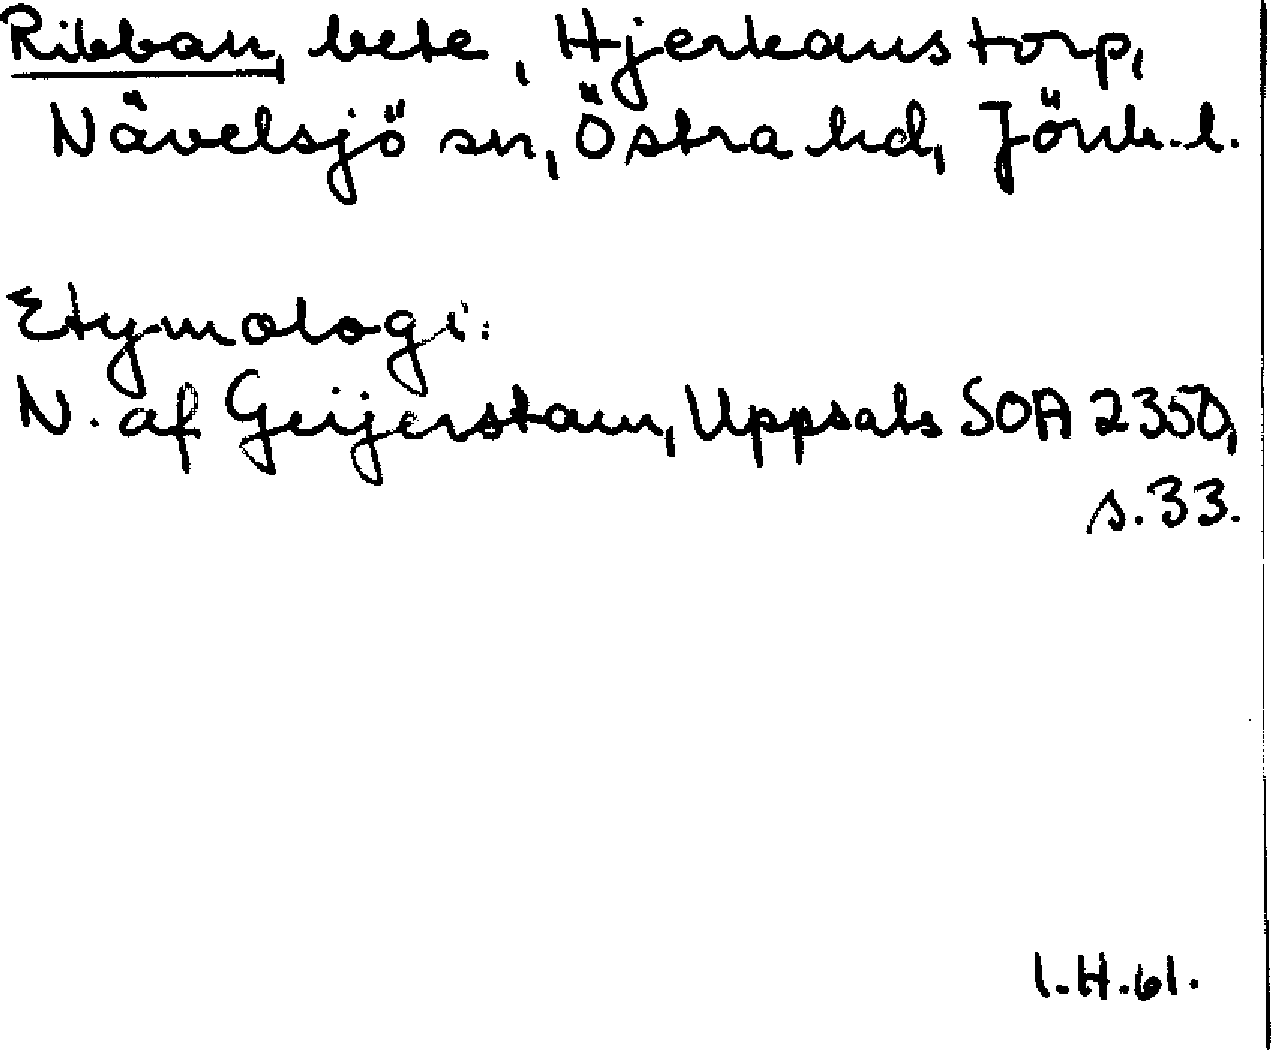 Ribban, bete, Hjerkanstorp,
Nävelsjö sn, Östra hd, Jönk.l.
Etymologi:
N. af Geijerstam, Uppsala SOA 2350,
s.33.
I.H.61.